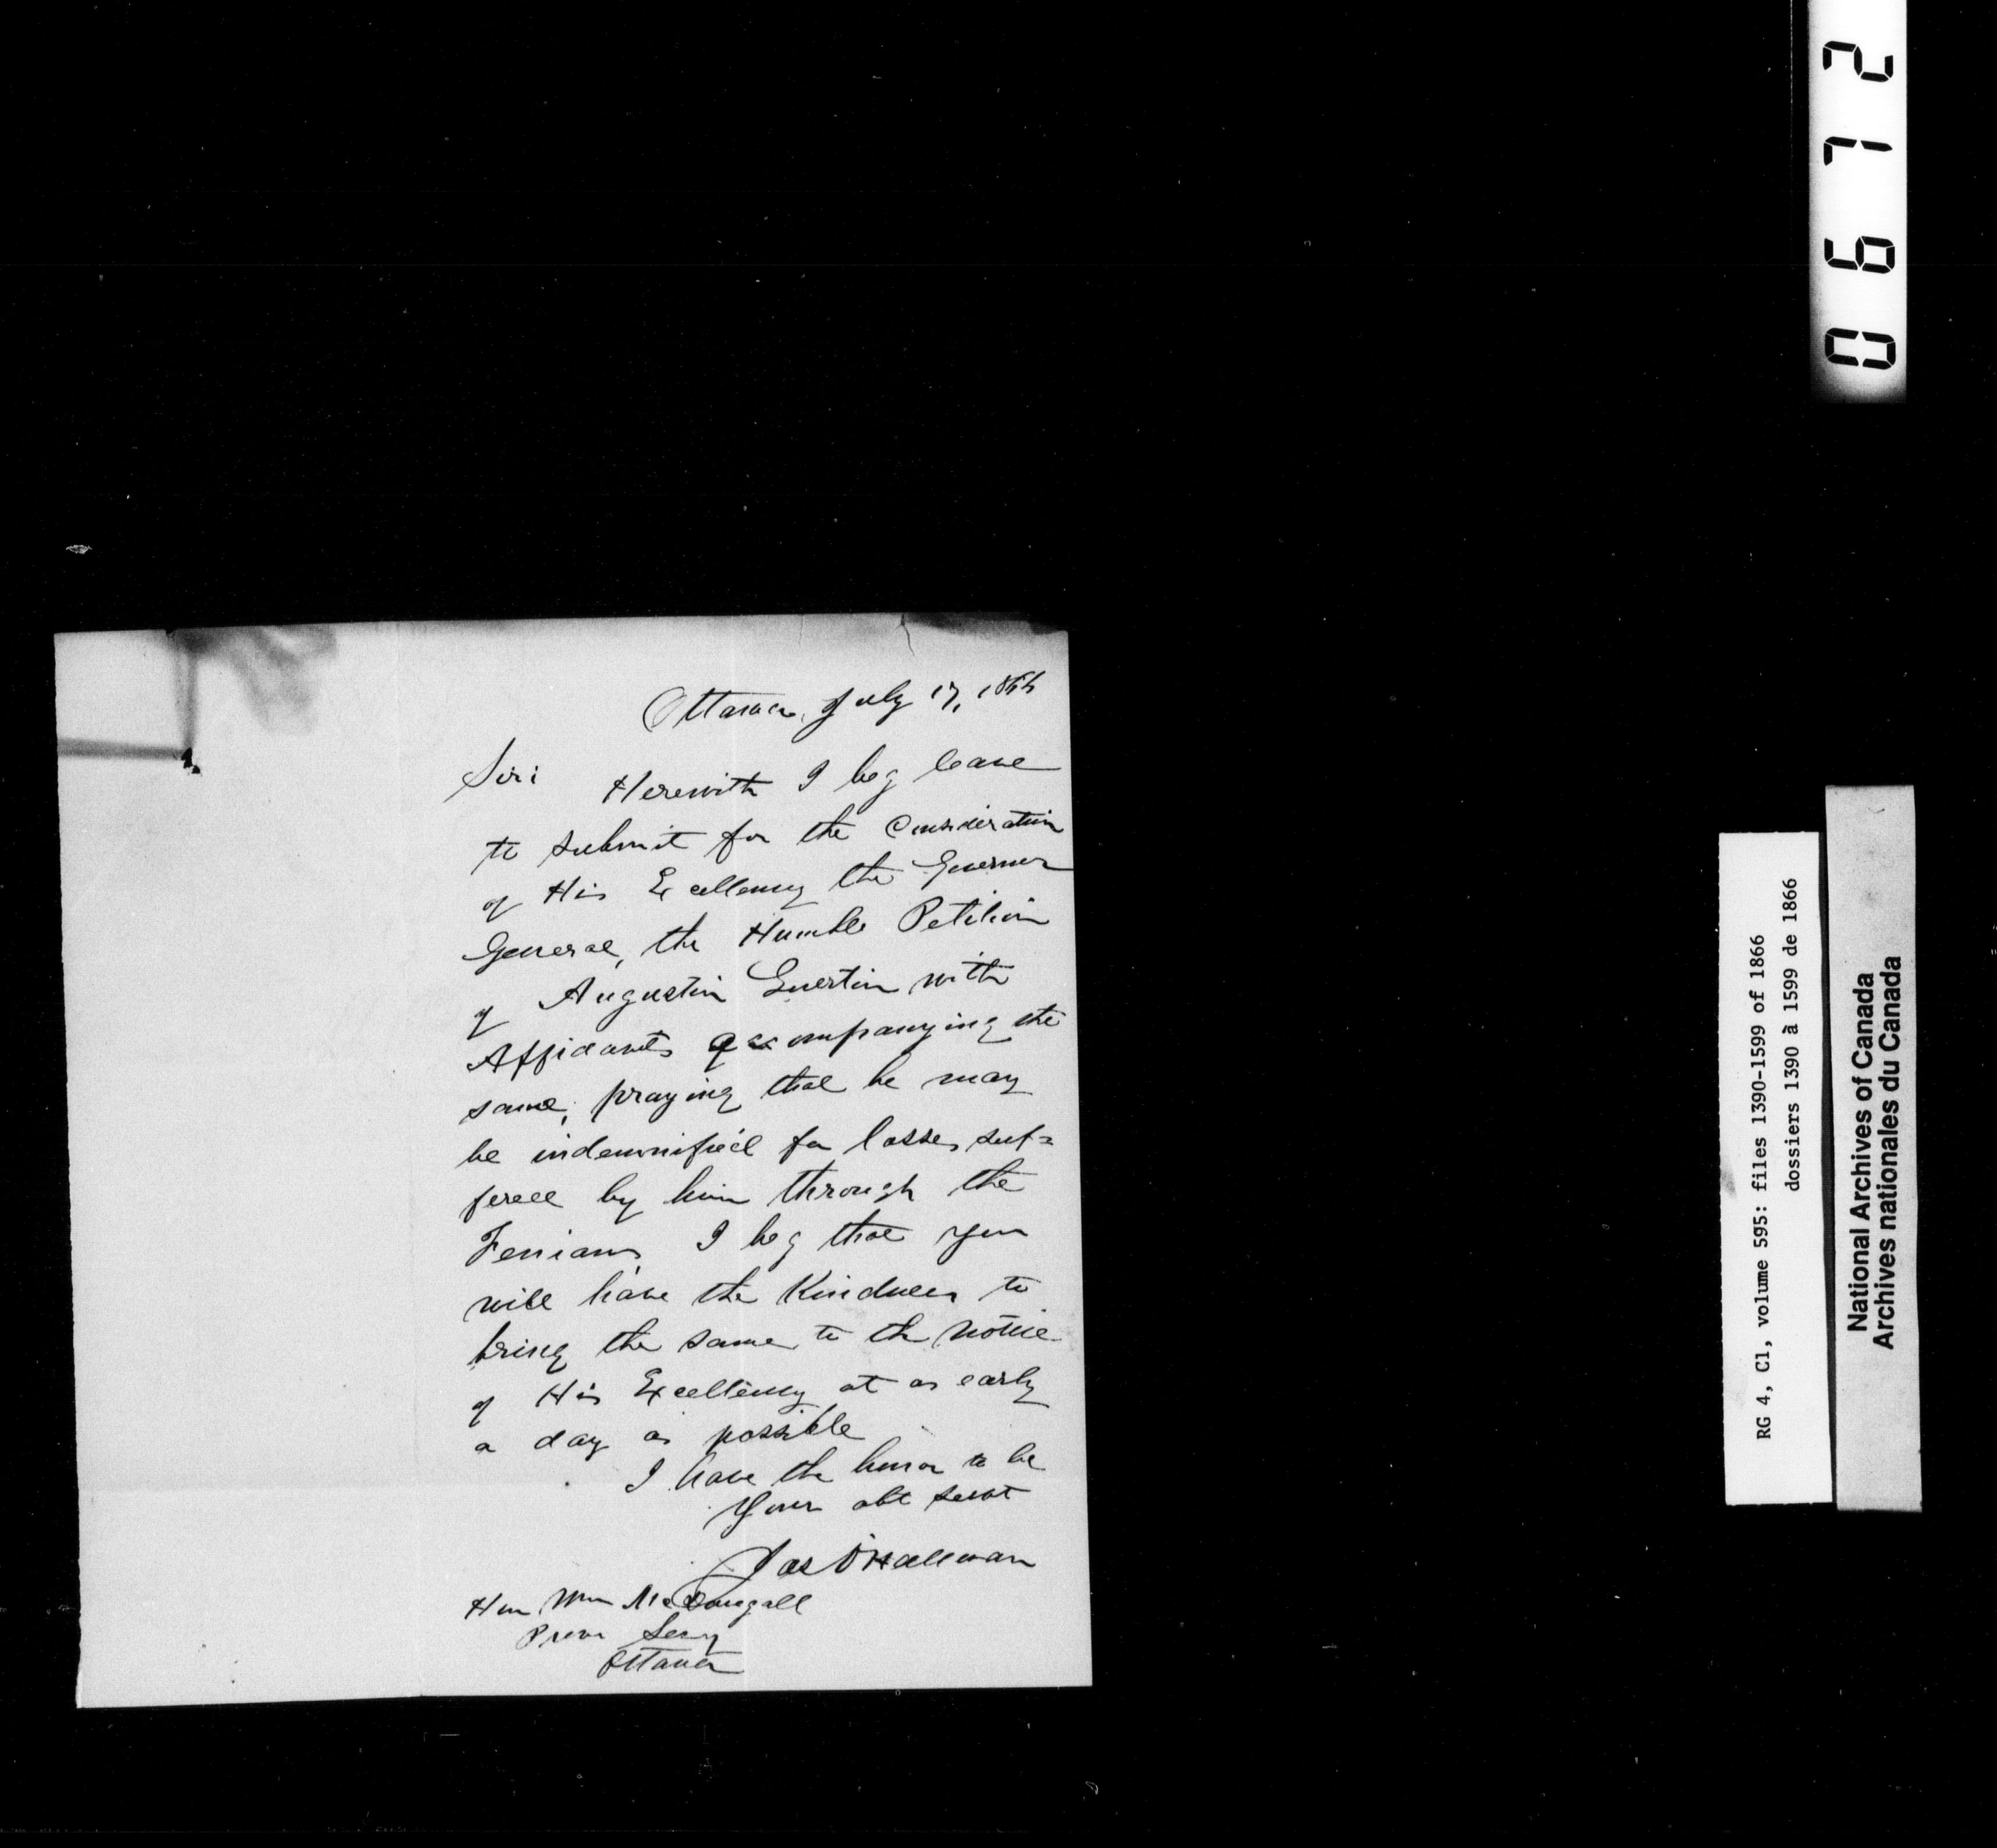 Ottawa, July 17, 1866
Sir
Herewith I beg leave
to submit for the Consideration
of His Excellency the Governor
General, the Humble Petition
of Augustin Guertin with
Affidavits accompanying the
same, praying that he may
be indemnified for losses suf=
fered by him through the
Fenians, I beg that you
will have the Kindness to
bring the same to the notice
of His Excellency at as early
a day as possible
I have the honor to be
Your obt servt
Jas O'Halloran
Hon Wm McDougall
Provl Secy
Ottawa
0672
RG 4, C1, volume 595: files 1390-1599 of 1866
dossiers 1390 à 1599 de 1866
National Archives of Canada
Archives nationales du Canada